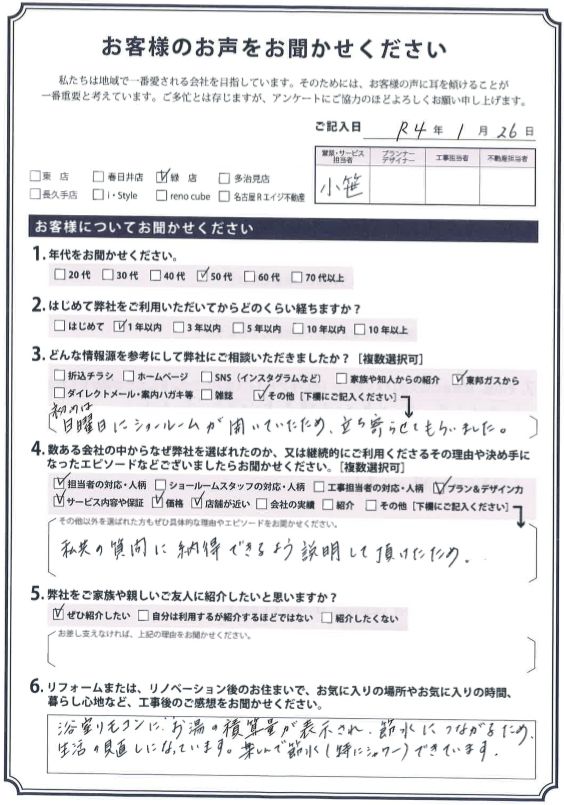 お客様のお声をお聞かせください
私たちは地域で一番愛される会社を目指しています。そのためには、お客様の声に耳を傾けることが
一番重要と考えています。ご多忙とは存じますが、アンケートにご協力のほどよろしくお願い申し上げます。
ご記入日 R4 年 1 月 26 日
営業・サービス担当者 プランナーデザイナー 工事担当者 不動産担当者
小笹
□東 店 □春日井店 ☑緑 店 □多治見店
□長久手店 □i・Style □reno cube □名古屋Rエイジ不動産
お客様についてお聞かせください
1. 年代をお聞かせください。
□20代 □30代 □40代 ☑50代 □60代 □70代以上
2. はじめて弊社をご利用いただいてからどのくらい経ちますか?
□はじめて ☑1年以内 □3年以内 □5年以内 □10年以内 □10年以上
3. どんな情報源を参考にして弊社にご相談いただきましたか?[複数選択可]
□折込チラシ □ホームページ □SNS(インスタグラムなど) □家族や知人からの紹介 ☑東邦ガスから
□ダイレクトメール・案内ハガキ等 □雑誌 ☑その他[下欄にご記入ください]
初めは
日曜日にショールームが開いていたため、立ち寄らせてもらいました。
4. 数ある会社の中からなぜ弊社を選ばれたのか、又は継続的にご利用くださるその理由や決め手に
なったエピソードなどございましたらお聞かせください。[複数選択可]
☑担当者の対応・人柄 □ショールームスタッフの対応・人柄 □工事担当者の対応・人柄 ☑プラン&デザイン力
☑サービス内容や保証 ☑価格 ☑店舗が近い □会社の実績 □紹介 □その他[下欄にご記入ください]
その他以外を選ばれた方もぜひ具体的な理由やエピソードをお聞かせください。
私共の質問に納得できるよう説明して頂けたため。
5. 弊社をご家族や親しいご友人に紹介したいと思いますか?
☑ぜひ紹介したい □自分は利用するが紹介するほどではない □紹介したくない
お差し支えなければ、上記の理由をお聞かせください。
6. リフォームまたは、リノベーション後のお住まいで、お気に入りの場所やお気に入りの時間、
暮らし心地など、工事後のご感想をお聞かせください。
浴室リモコンに、お湯の積算量が表示され、節水につながるため、
生活の見直しになっています。楽しんで節水(特にシャワー)できています。